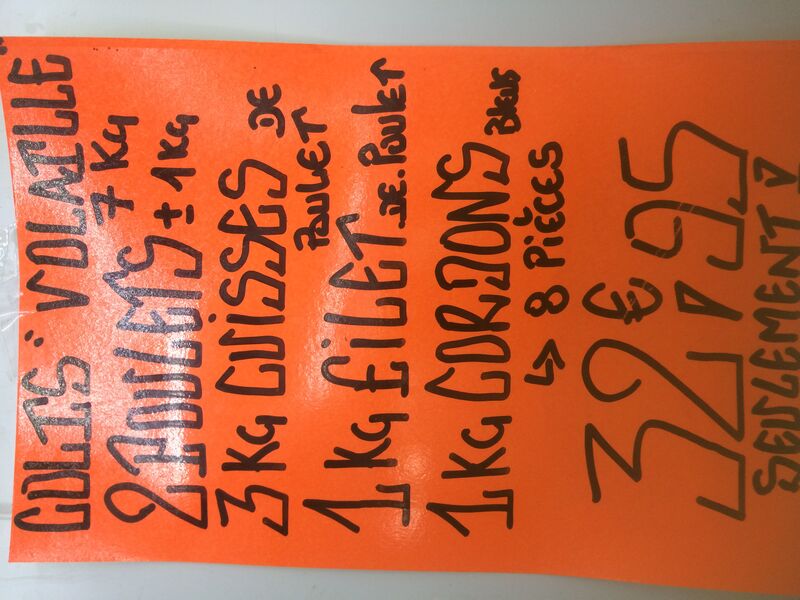 COLIS "VOLAILLE"
7 KG
2 POULETS ± 1 KG
3 KG CUISSES DE
POULET
1 KG FILET DE POULET
1 KG CORDONS BLEUS
↳ 8 PIÈCES
32€,95
SEULEMENT